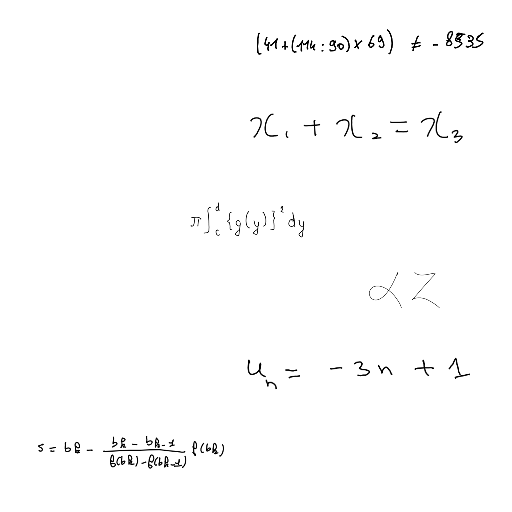 (41+(114:90)×69) ≠ -8535
x₁ + x₂ = x₃
π∫_c^d {g(y)}² dy
αZ
uₙ = -3n + 1
s = bk - \frac{bk - bk-1}{f(bk)-f(bk-1)} f(bk)